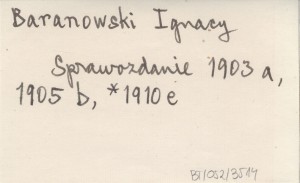 Baranowski Ignacy
Sprawozdanie 1903 a,
1905 b, *1910 e
BJ/052/3514